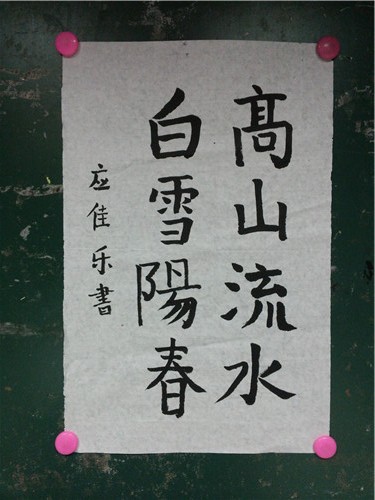 髙山流水
白雪陽春
应佳乐書